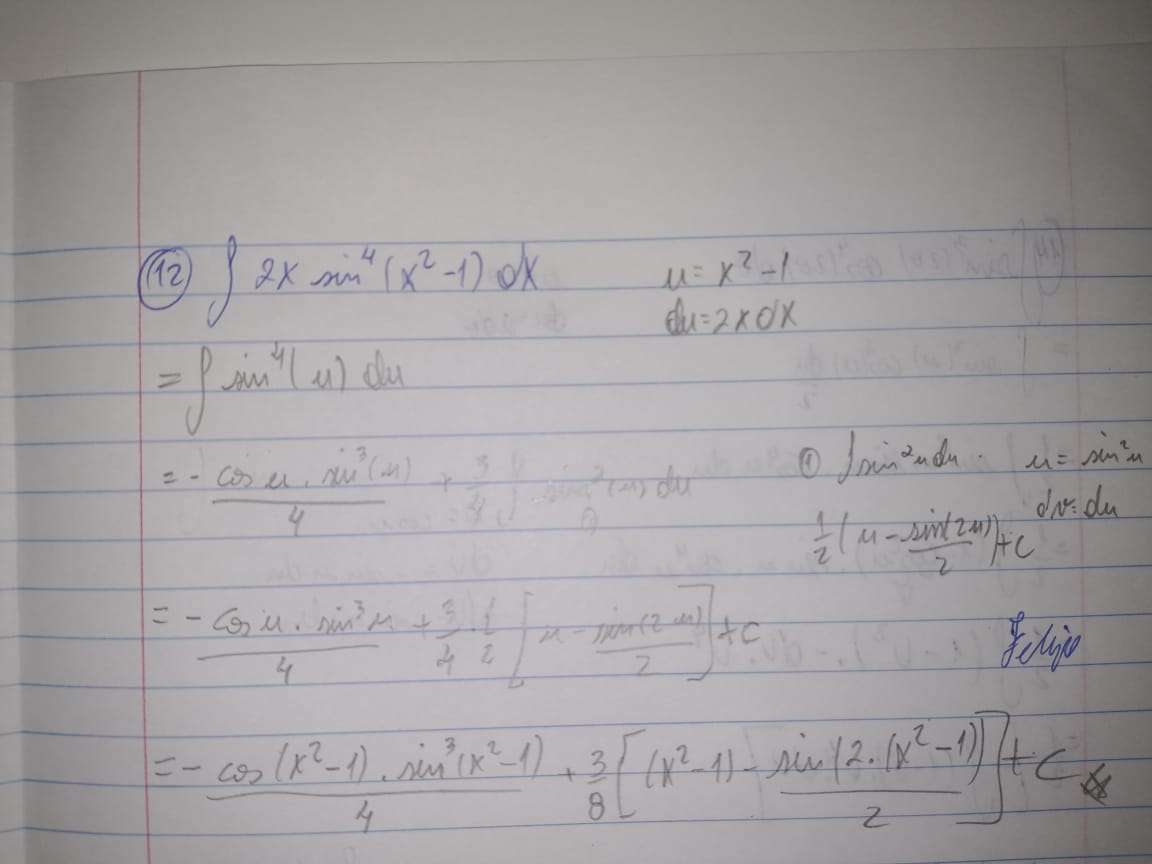 (12) ∫ 2x sin⁴(x²-1) dx u = x²-1
du = 2x dx
= ∫ sin⁴(u) du
= - cos u . sin³(u)/4 + 3/4 ∫ sin²(u) du ① ∫ sin²u du . u = sin²u
dv = du
1/2 (u - sin(2u)/2) + C
= - cos u . sin³u/4 + 3/4 . 1/2 [u - sin(2u)/2] + C
Felipe
= - cos(x²-1) . sin³(x²-1)/4 + 3/8 [(x²-1) - sin(2.(x²-1))/2] + C